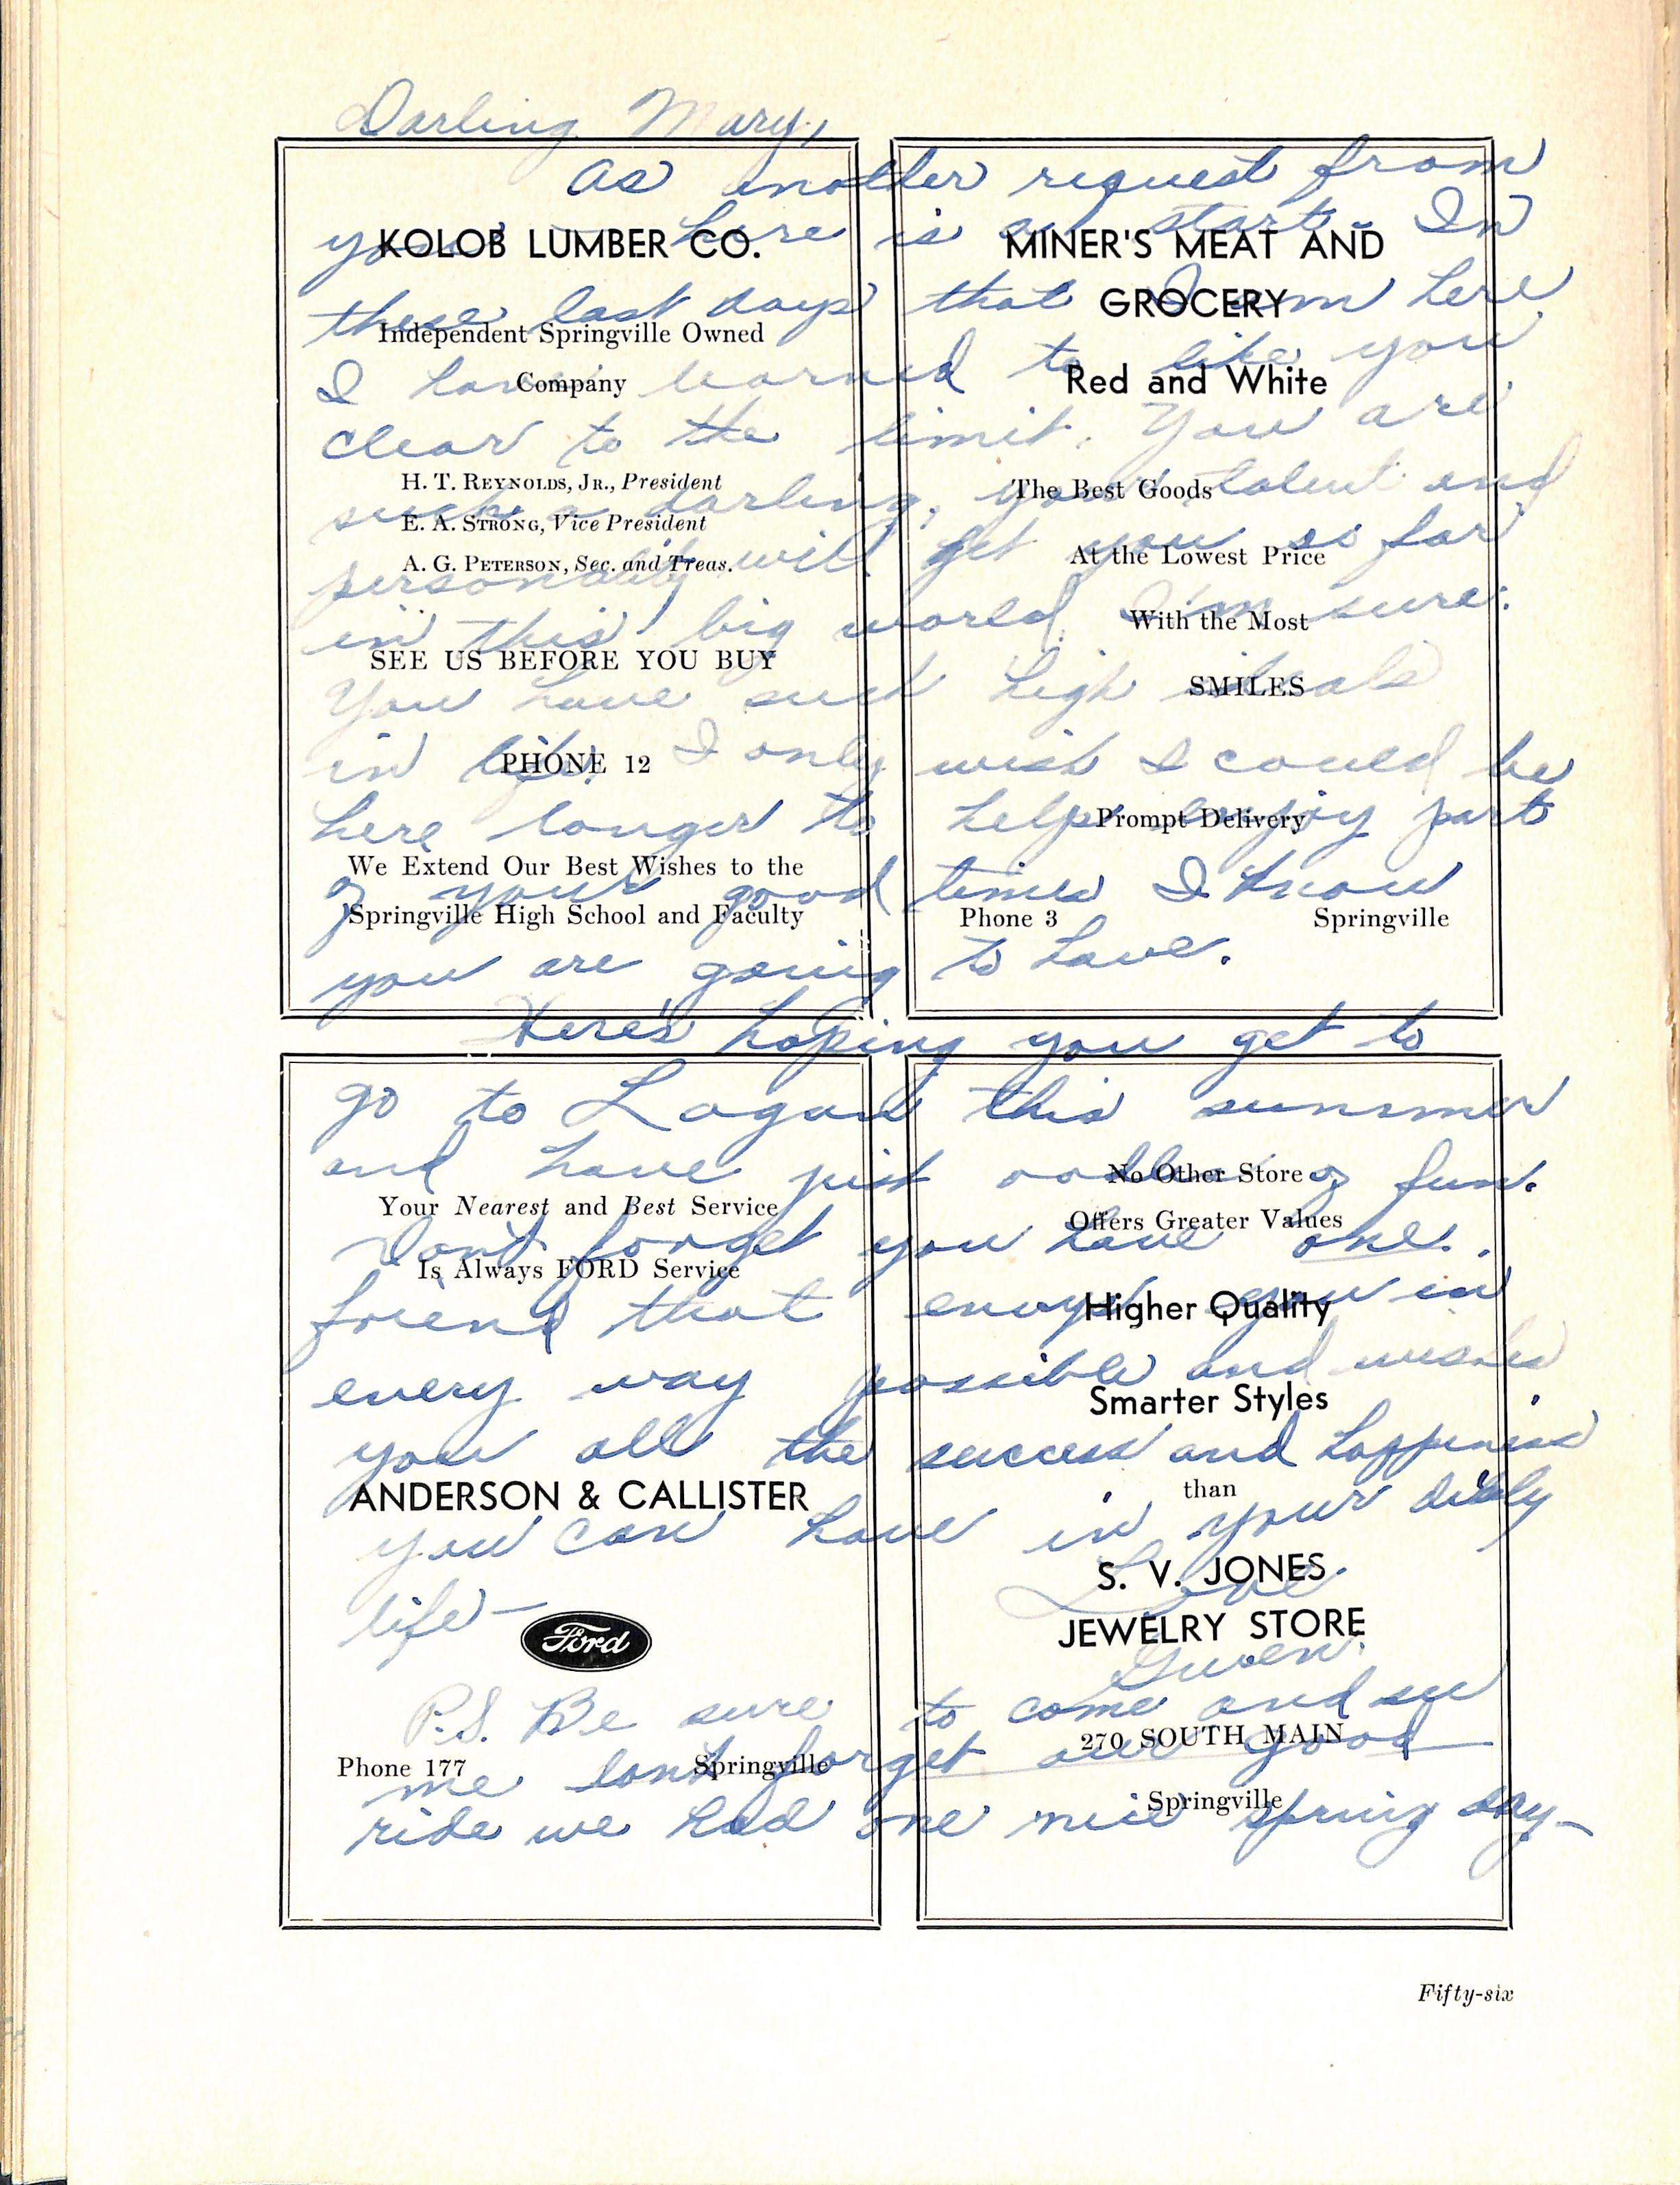 Darling Mary,
as another request from
you - here is a start - In
these last days that I am here
I have learned to like you
clear to the limit. You are
such a darling, your talent and
personality will get you so far
in this big world I'm sure.
You have such high ideals
in life. I only wish I could be
here longer to help enjoy part
of your good times I know
you are going to have.
Here's hoping you get to
go to Logan this summer
and have just oodles of fun.
Don't forget you have one
friend that envys you in
every way possible and wishes
you all the success and happiness
you can have in your daily
life -
Love
Gwen.
P.S. Be sure to come and see
me dont forget our good
ride we had one nice spring day -
KOLOB LUMBER CO.
Independent Springville Owned
Company
H. T. REYNOLDS, JR., President
E. A. STRONG, Vice President
A. G. PETERSON, Sec. and Treas.
SEE US BEFORE YOU BUY
PHONE 12
We Extend Our Best Wishes to the
Springville High School and Faculty
MINER'S MEAT AND
GROCERY
Red and White
The Best Goods
At the Lowest Price
With the Most
SMILES
Prompt Delivery
Phone 3 Springville
Your Nearest and Best Service
Is Always FORD Service
ANDERSON & CALLISTER
Ford
Phone 177 Springville
No Other Store
Offers Greater Values
Higher Quality
Smarter Styles
than
S. V. JONES
JEWELRY STORE
270 SOUTH MAIN
Springville
Fifty-six